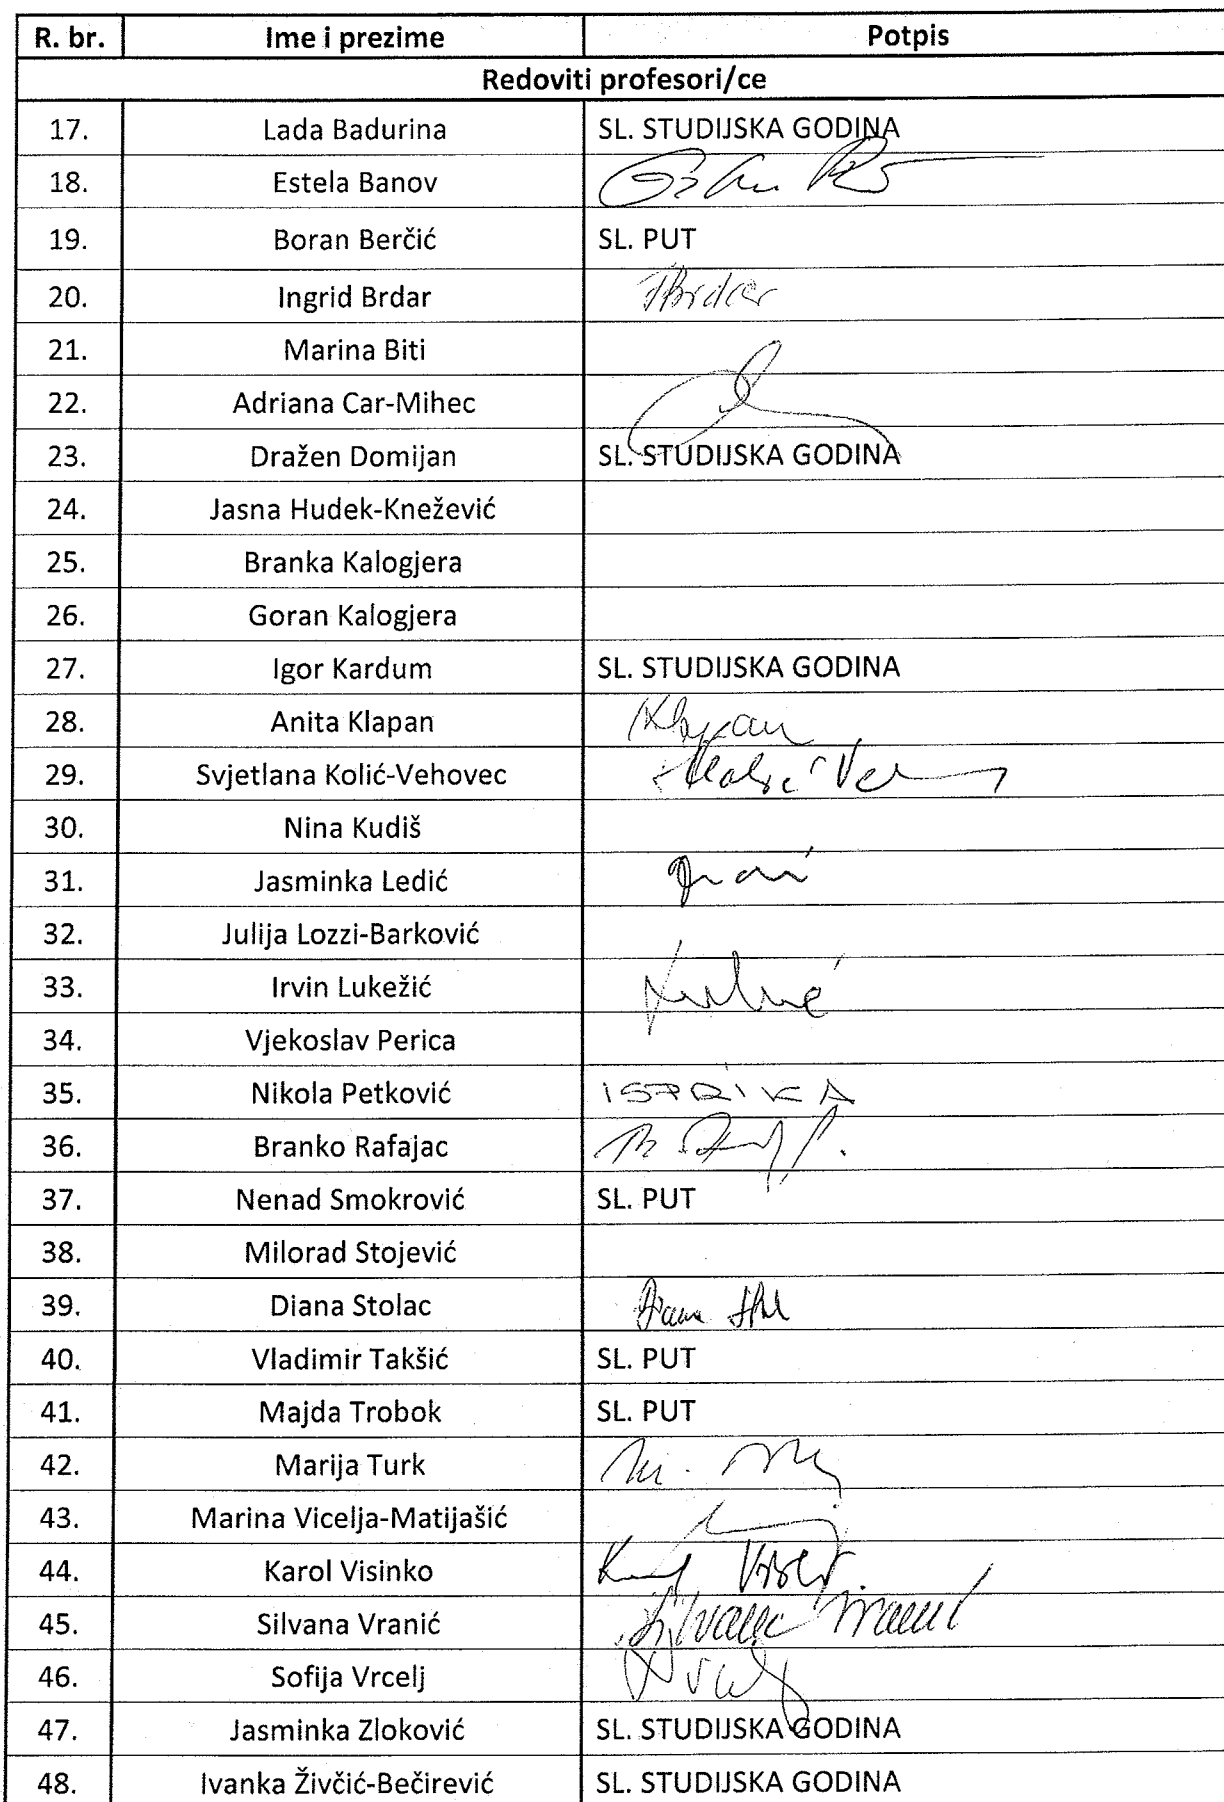 R. br. Ime i prezime Potpis
Redoviti profesori/ce
17. Lada Badurina SL. STUDIJSKA GODINA
18. Estela Banov
19. Boran Berčić SL. PUT
20. Ingrid Brdar IBrdar
21. Marina Biti
22. Adriana Car-Mihec
23. Dražen Domijan SL. STUDIJSKA GODINA
24. Jasna Hudek-Knežević
25. Branka Kalogjera
26. Goran Kalogjera
27. Igor Kardum SL. STUDIJSKA GODINA
28. Anita Klapan Klapan
29. Svjetlana Kolić-Vehovec
30. Nina Kudiš
31. Jasminka Ledić
32. Julija Lozzi-Barković
33. Irvin Lukežić
34. Vjekoslav Perica
35. Nikola Petković ISPRIKA
36. Branko Rafajac
37. Nenad Smokrović SL. PUT
38. Milorad Stojević
39. Diana Stolac
40. Vladimir Takšić SL. PUT
41. Majda Trobok SL. PUT
42. Marija Turk
43. Marina Vicelja-Matijašić
44. Karol Visinko
45. Silvana Vranić Silvana Vranić
46. Sofija Vrcelj
47. Jasminka Zloković SL. STUDIJSKA GODINA
48. Ivanka Živčić-Bečirević SL. STUDIJSKA GODINA